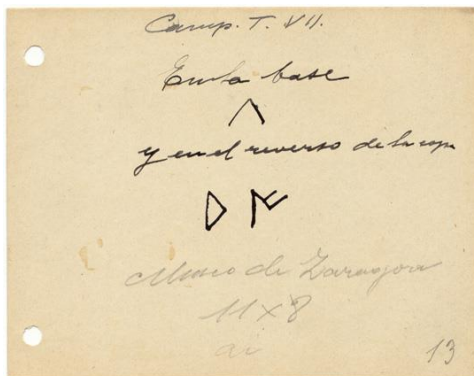 Camp. T. VII.
En la base
Λ
y en el reverso de la copa
Museo de Zaragoza
11 x 8
13